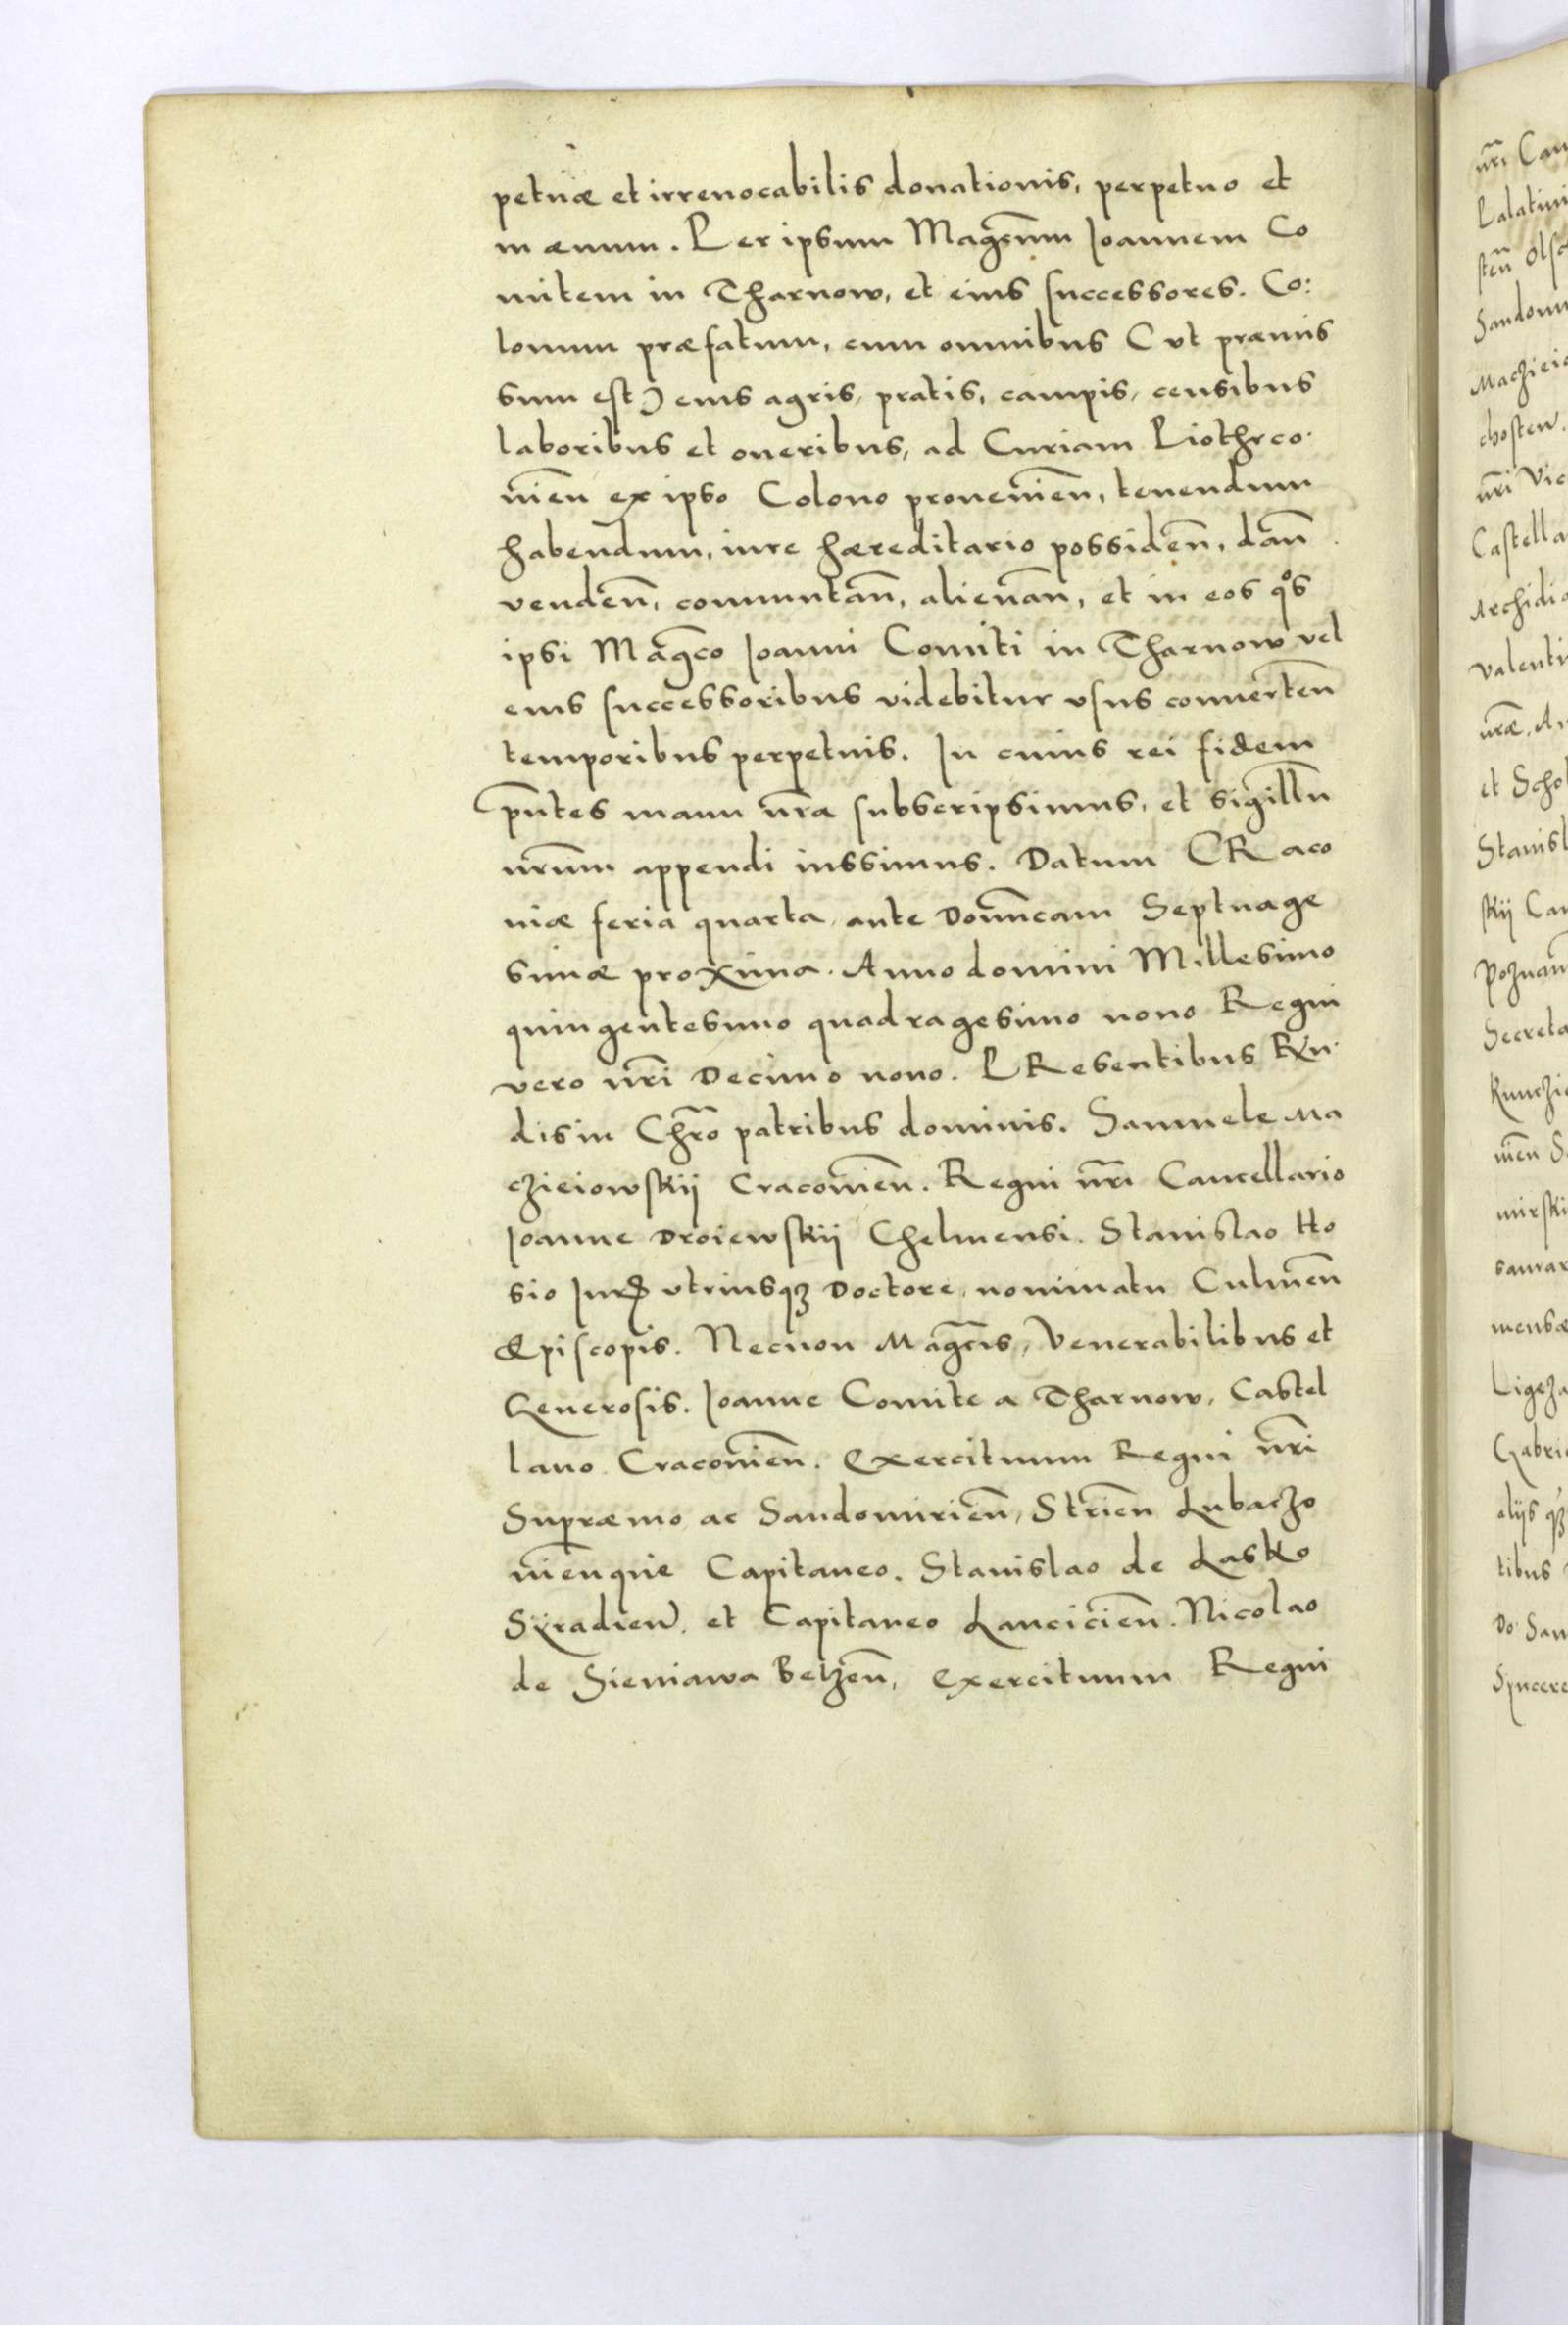 petuæ et irreuocabilis donationis, perpetuo et
in æuum. Per ipsum Magcum̃ Ioannem Co
mitem in Tharnow, et eius successores. Co:
lonum præfatum, cum omnibus (vt præmis
sum est) eius agris, pratis, campis, censibus
laboribus et oneribus, ad Curiam Piothrco
uien̄ ex ipso Colono prouenien̄, tenendum
habendum, iure hæreditario possiden̄, dan̄
venden̄, commutan̄, alienan̄, et in eos qºs
ipsi Magco Ioanni Comiti in Tharnow vel
eius successoribus videbitur vsus conuerten̄
temporibus perpetuis. In cuius rei fidem
pn̄tes manu nr̄a subscripsimus, et sigillū
nrūm appendi iussimus. Datum CRaco
uiæ feria quarta ante Domīcam Septuage
simæ proxima. Anno domini Millesimo
quingentesimo quadragesimo nono Regni
vero nr̄i Decimo nono. PResentibus Rn̄
dis in Chr̄o patribus dominis. Samuele Ma
czieiowskij Cracouien̄. Regni nr̄i Cancellario
Ioanne Droiewskij Chelmensi. Stanislao Ho
sio Iuris vtriusqꝫ Doctore, nominatu Culmen̄
Episcopis. Necnon Magcis, Venerabilibus et
Generosis. Ioanne Comite a Tharnow, Castel
lano Cracouien̄. Exercituum Regni nr̄i
Supræmo ac Sandomirien̄, Strien̄ Lubaczo
uien̄ que Capitaneo. Stanislao de Lasko
Syradien̄. et Capitaneo Lancicien̄. Nicolao
de Sieniawa Belzen̄, Exercituum Regni
nr̄i
Palatini
sten̄
Castella
Archidia
Valenti
nræ, A
et Schol
Stanisl
skij Ca
Poznan̄
Secreta
uien̄ S
mirski
mensæ
Ligeza
Gabrie
alijs qꝫ
tibus
Do San
Syncere